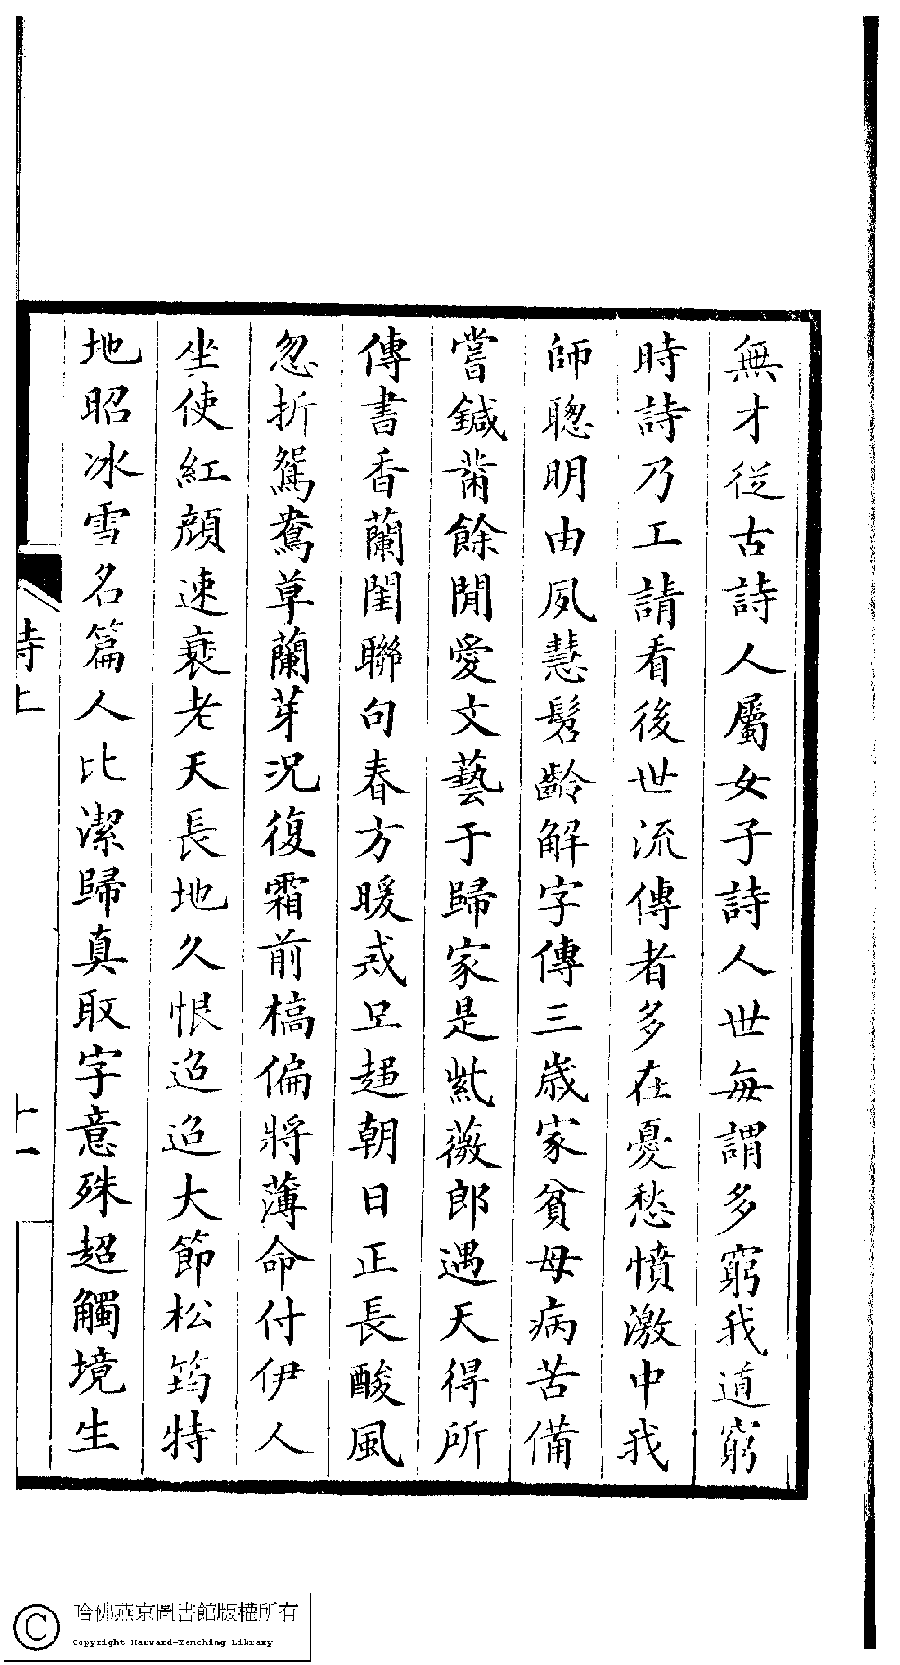 無才從古詩人屬女子詩人世每謂多窮我道窮
時詩乃工請看後世流傳者多在憂愁憤激中我
師聰明由夙慧髫齡解字傳三歲家貧母病苦備
嘗鍼黹餘閒愛文藝于歸家是紫薇郎遇天得所
傳書香蘭閨聯句春方暖戎足趨朝日正長酸風
忽折鴛鴦草蘭芽況復霜前槁偏將薄命付伊人
坐使紅顔速衰老天長地久恨迢迢大節松筠特
地昭冰雪名篇人比潔歸真取字意殊超觸境生
詩上
十一
哈佛燕京圖書館版權所有
Copyright Harvard-Yenching Library